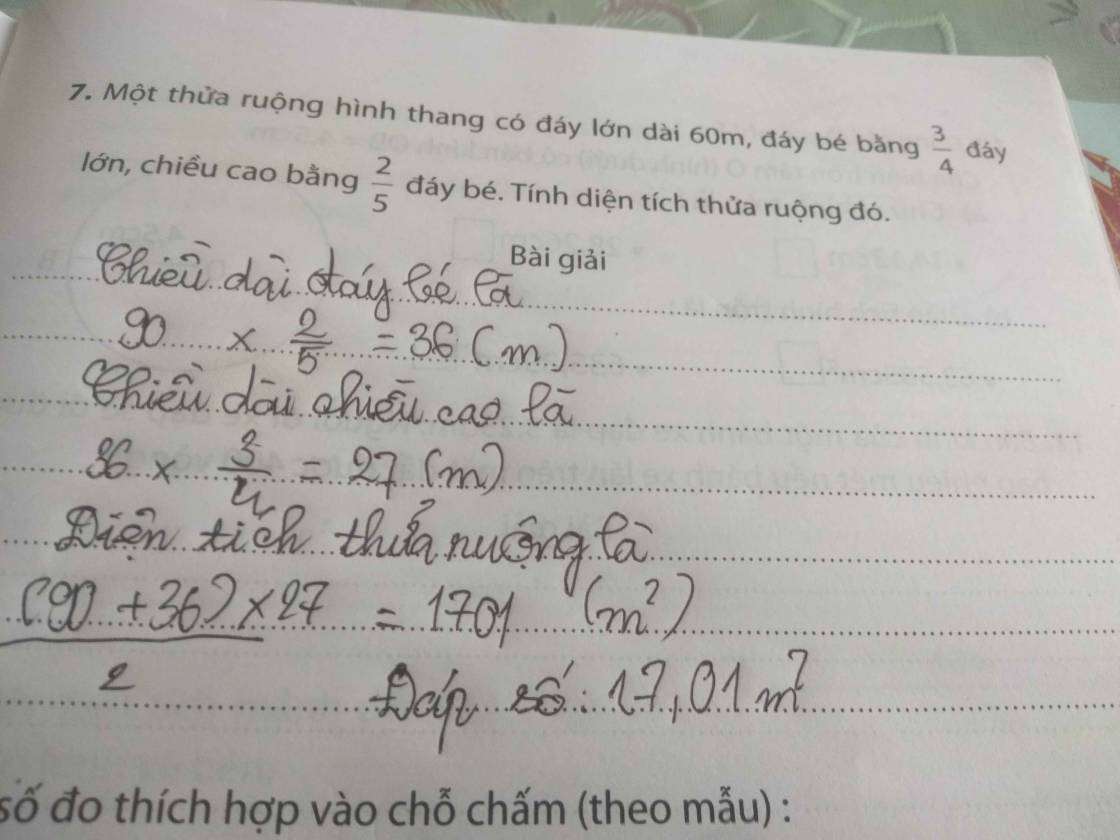 7. Một thửa ruộng hình thang có đáy lớn dài 60m, đáy bé bằng 3/4 đáy
lớn, chiều cao bằng 2/5 đáy bé. Tính diện tích thửa ruộng đó.
Bài giải
Chiều dài đáy bé là
90 x 2/5 = 36 (m)
Chiều dài chiều cao là
36 x 3/4 = 27 (m)
Diện tích thửa ruộng là
(90 + 36) x 27 / 2 = 1701 (m²)
Đáp số: 17,01 m²
số đo thích hợp vào chỗ chấm (theo mẫu) :